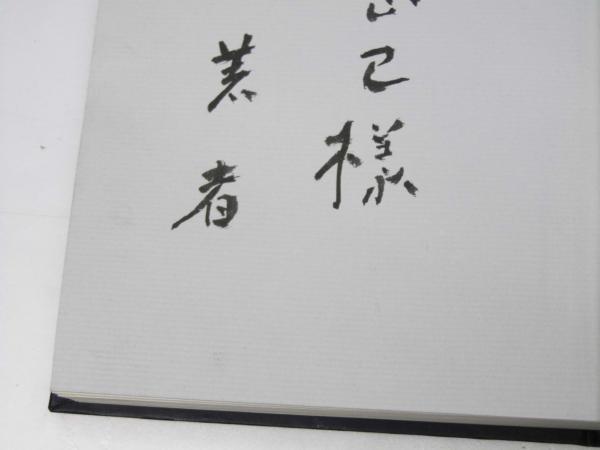 己様
著者